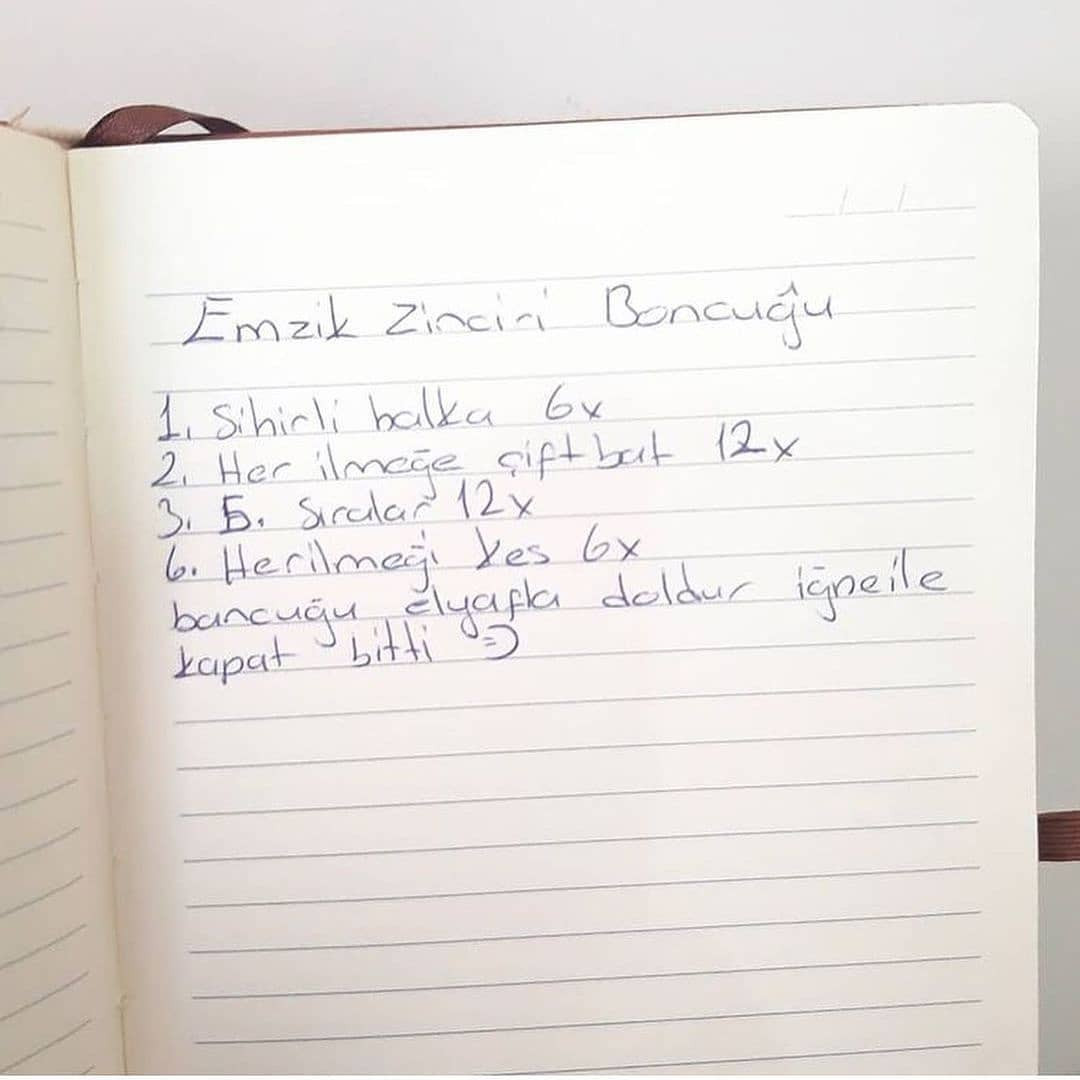 Emzik Zinciri Boncuğu
1. Sihirli halka 6x
2. Her ilmeğe çift bat 12x
3. 5. Sıralar 12x
6. Her ilmeği kes 6x
boncuğu elyafla doldur iğne ile
kapat bitti =)